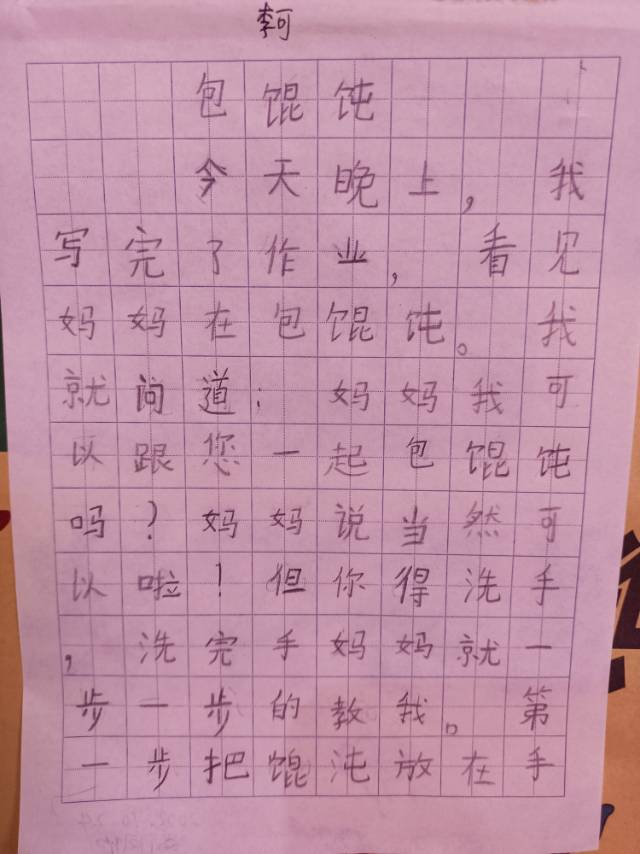 李可
包馄饨
今天晚上，我
写完了作业，看见
妈妈在包馄饨。我
就问道：妈妈我可
以跟您一起包馄饨
吗？妈妈说当然可
以啦！但你得洗手
，洗完手妈妈就一
步一步的教我。第
一步把馄沌放在手